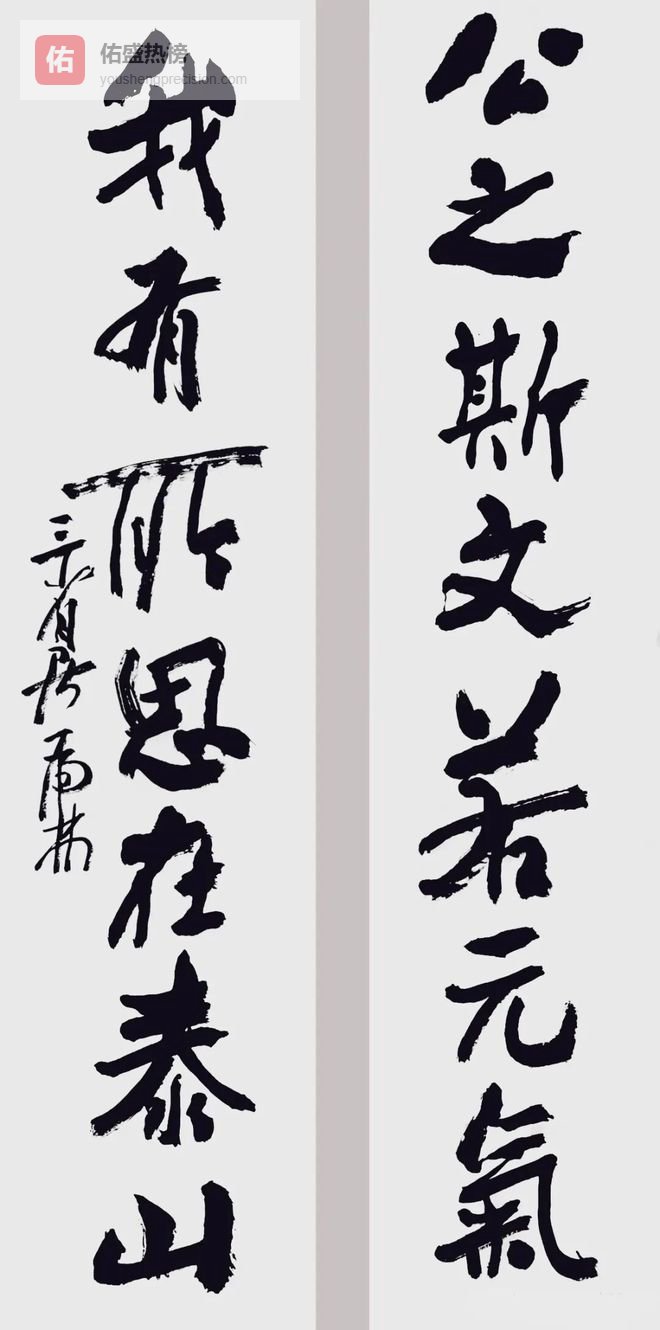 佑
佑盛热榜
youshengprecision.com
公之斯文若元氣
我有所思在泰山